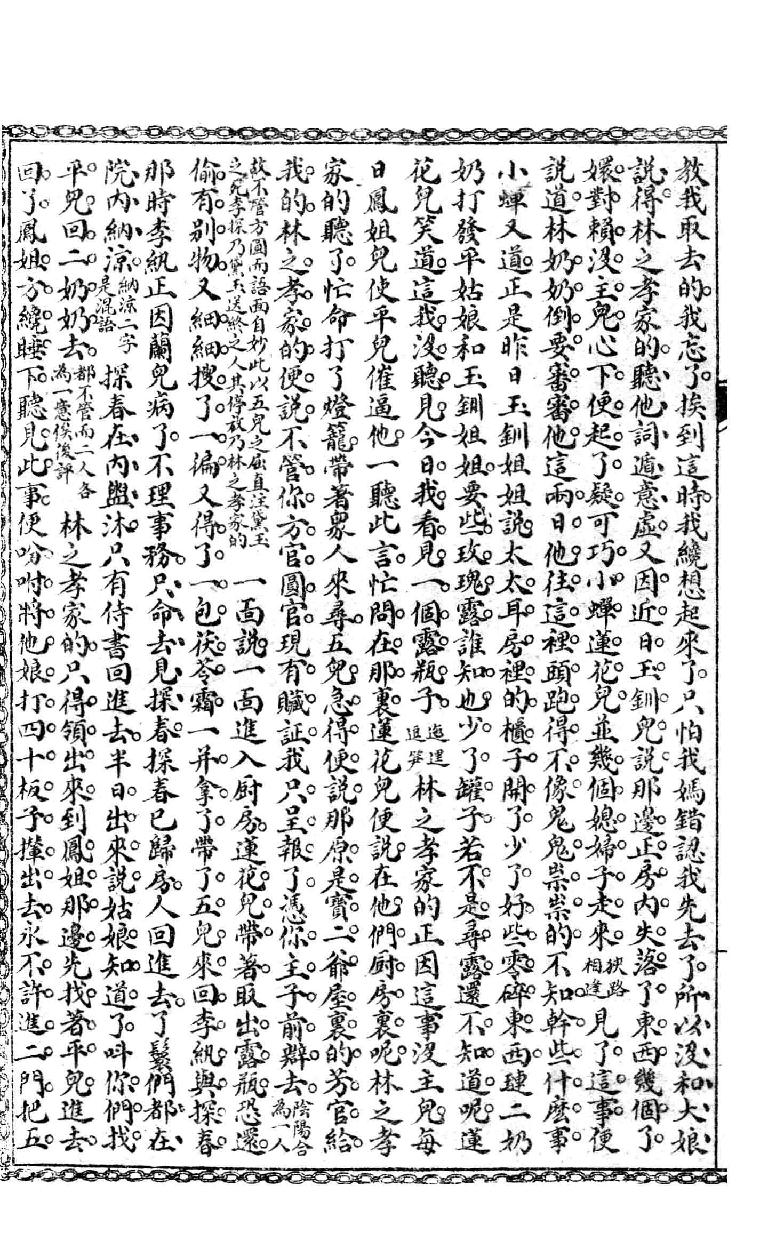 教我取去的我忘了挨到這時我纔想起來了只怕我媽錯認我先去了所以沒和大娘
說得林之孝家的聽他詞遁意虛又因近日玉釧兒說那邊正房內失落了東西幾個丫
嬛對賴沒主兒心下便起了疑可巧小蟬蓮花兒並幾個媳婦子走來狹路相逢見了這事便
說道林奶奶倒要審審他這兩日他往這裡頭跑得不像鬼鬼祟祟的不知幹些什麽事
小蟬又道正是昨日玉釧姐姐說太太耳房裡的櫃子開了少了好些零碎東西璉二奶
奶打發平姑娘和玉釧姐姐要些玫瑰露誰知也少了一罐子若不是尋露還不知道呢蓮
花兒笑道這我沒聽見今日我看見一個露瓶子迤逗逗筍林之孝家的正因這事沒主兒每
日鳳姐兒使平兒催逼他一聽此言忙問在那裏蓮花兒便說在他們厨房裏呢林之孝
家的聽了忙命打了燈籠帶著衆人來尋五兒急得便說那原是寳二爺屋裏的芳官給
我的林之孝家的便說不管你方官圓官現有贜証我只呈報了凴你主子前辯去陰陽合為一人
故不管方圓而語面自妙此以五兒之屈直注黛玉之死李探乃黛玉送終之人其停放乃林之孝家的一面說一面進入厨房蓮花兒帶著取出露瓶恐還
偷有别物又細細搜了一遍又得了一包茯苓霜一并拿了帶了五兒來回李紈與探春
那時李紈正因蘭兒病了不理事務只命去見探春探春已歸房人回進去了鬟們都在
院內納凉納凉二字是混語探春在內盥沐只有侍書回進去半日出來說姑娘知道了呌你們找
平兒回二奶奶去都不管而二人各為一意俟後評林之孝家的只得領出來到鳳姐那邊先找著平兒進去
回了鳳姐方纔睡下聽見此事便吩咐將他娘打四十板子攆出去永不許進二門把五